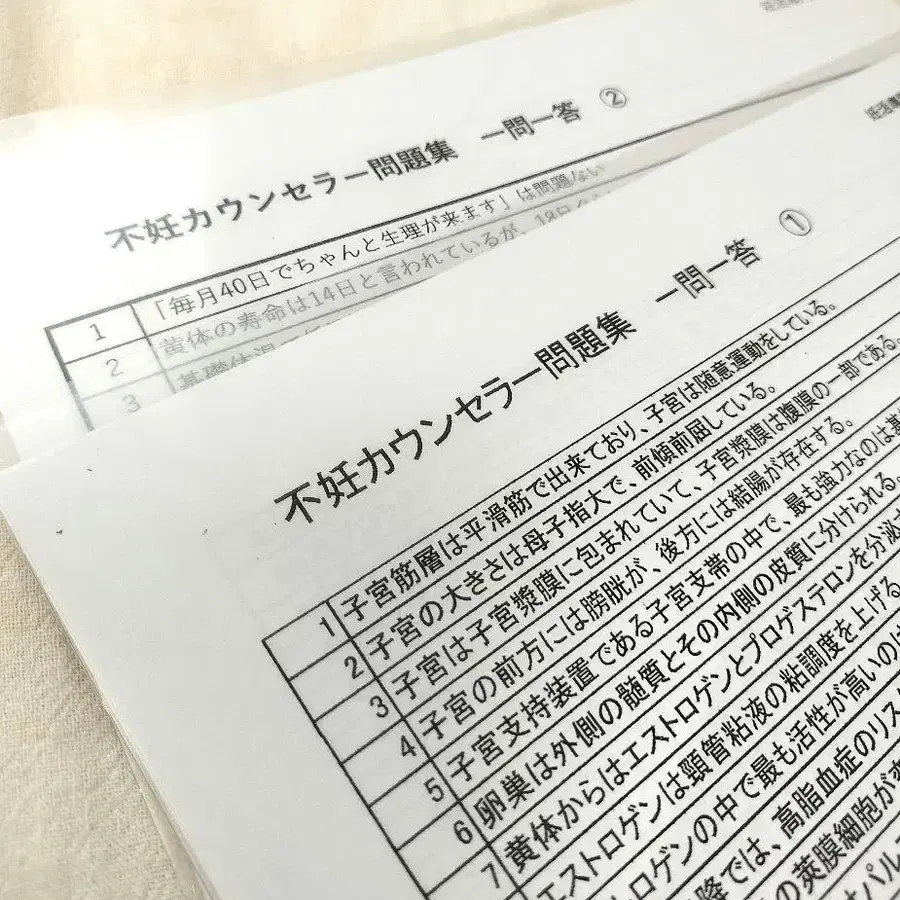 不妊カウンセラー問題集 一問一答 ②
1 「毎月40日でちゃんと生理が来ます」は問題ない
2 黄体の寿命は14日と言われているが、
3 基礎体温
不妊カウンセラー問題集 一問一答 ①
1 子宮筋層は平滑筋で出来ており、子宮は随意運動をしている。
2 子宮の大きさは母子指大で、前傾前屈している。
3 子宮は子宮漿膜に包まれていて、子宮漿膜は腹膜の一部である。
4 子宮の前方には膀胱が、後方には結腸が存在する。
5 子宮支持装置である子宮支帯の中で、最も強力なのは基
6 卵巣は外側の髄質とその内側の皮質に分けられる。
7 黄体からはエストロゲンとプロゲステロンを分泌
エストロゲンは頸管粘液の粘調度を上げる
トロゲンの中で最も活性が高いのは
降では、高脂血症のリス
の莢膜細胞が